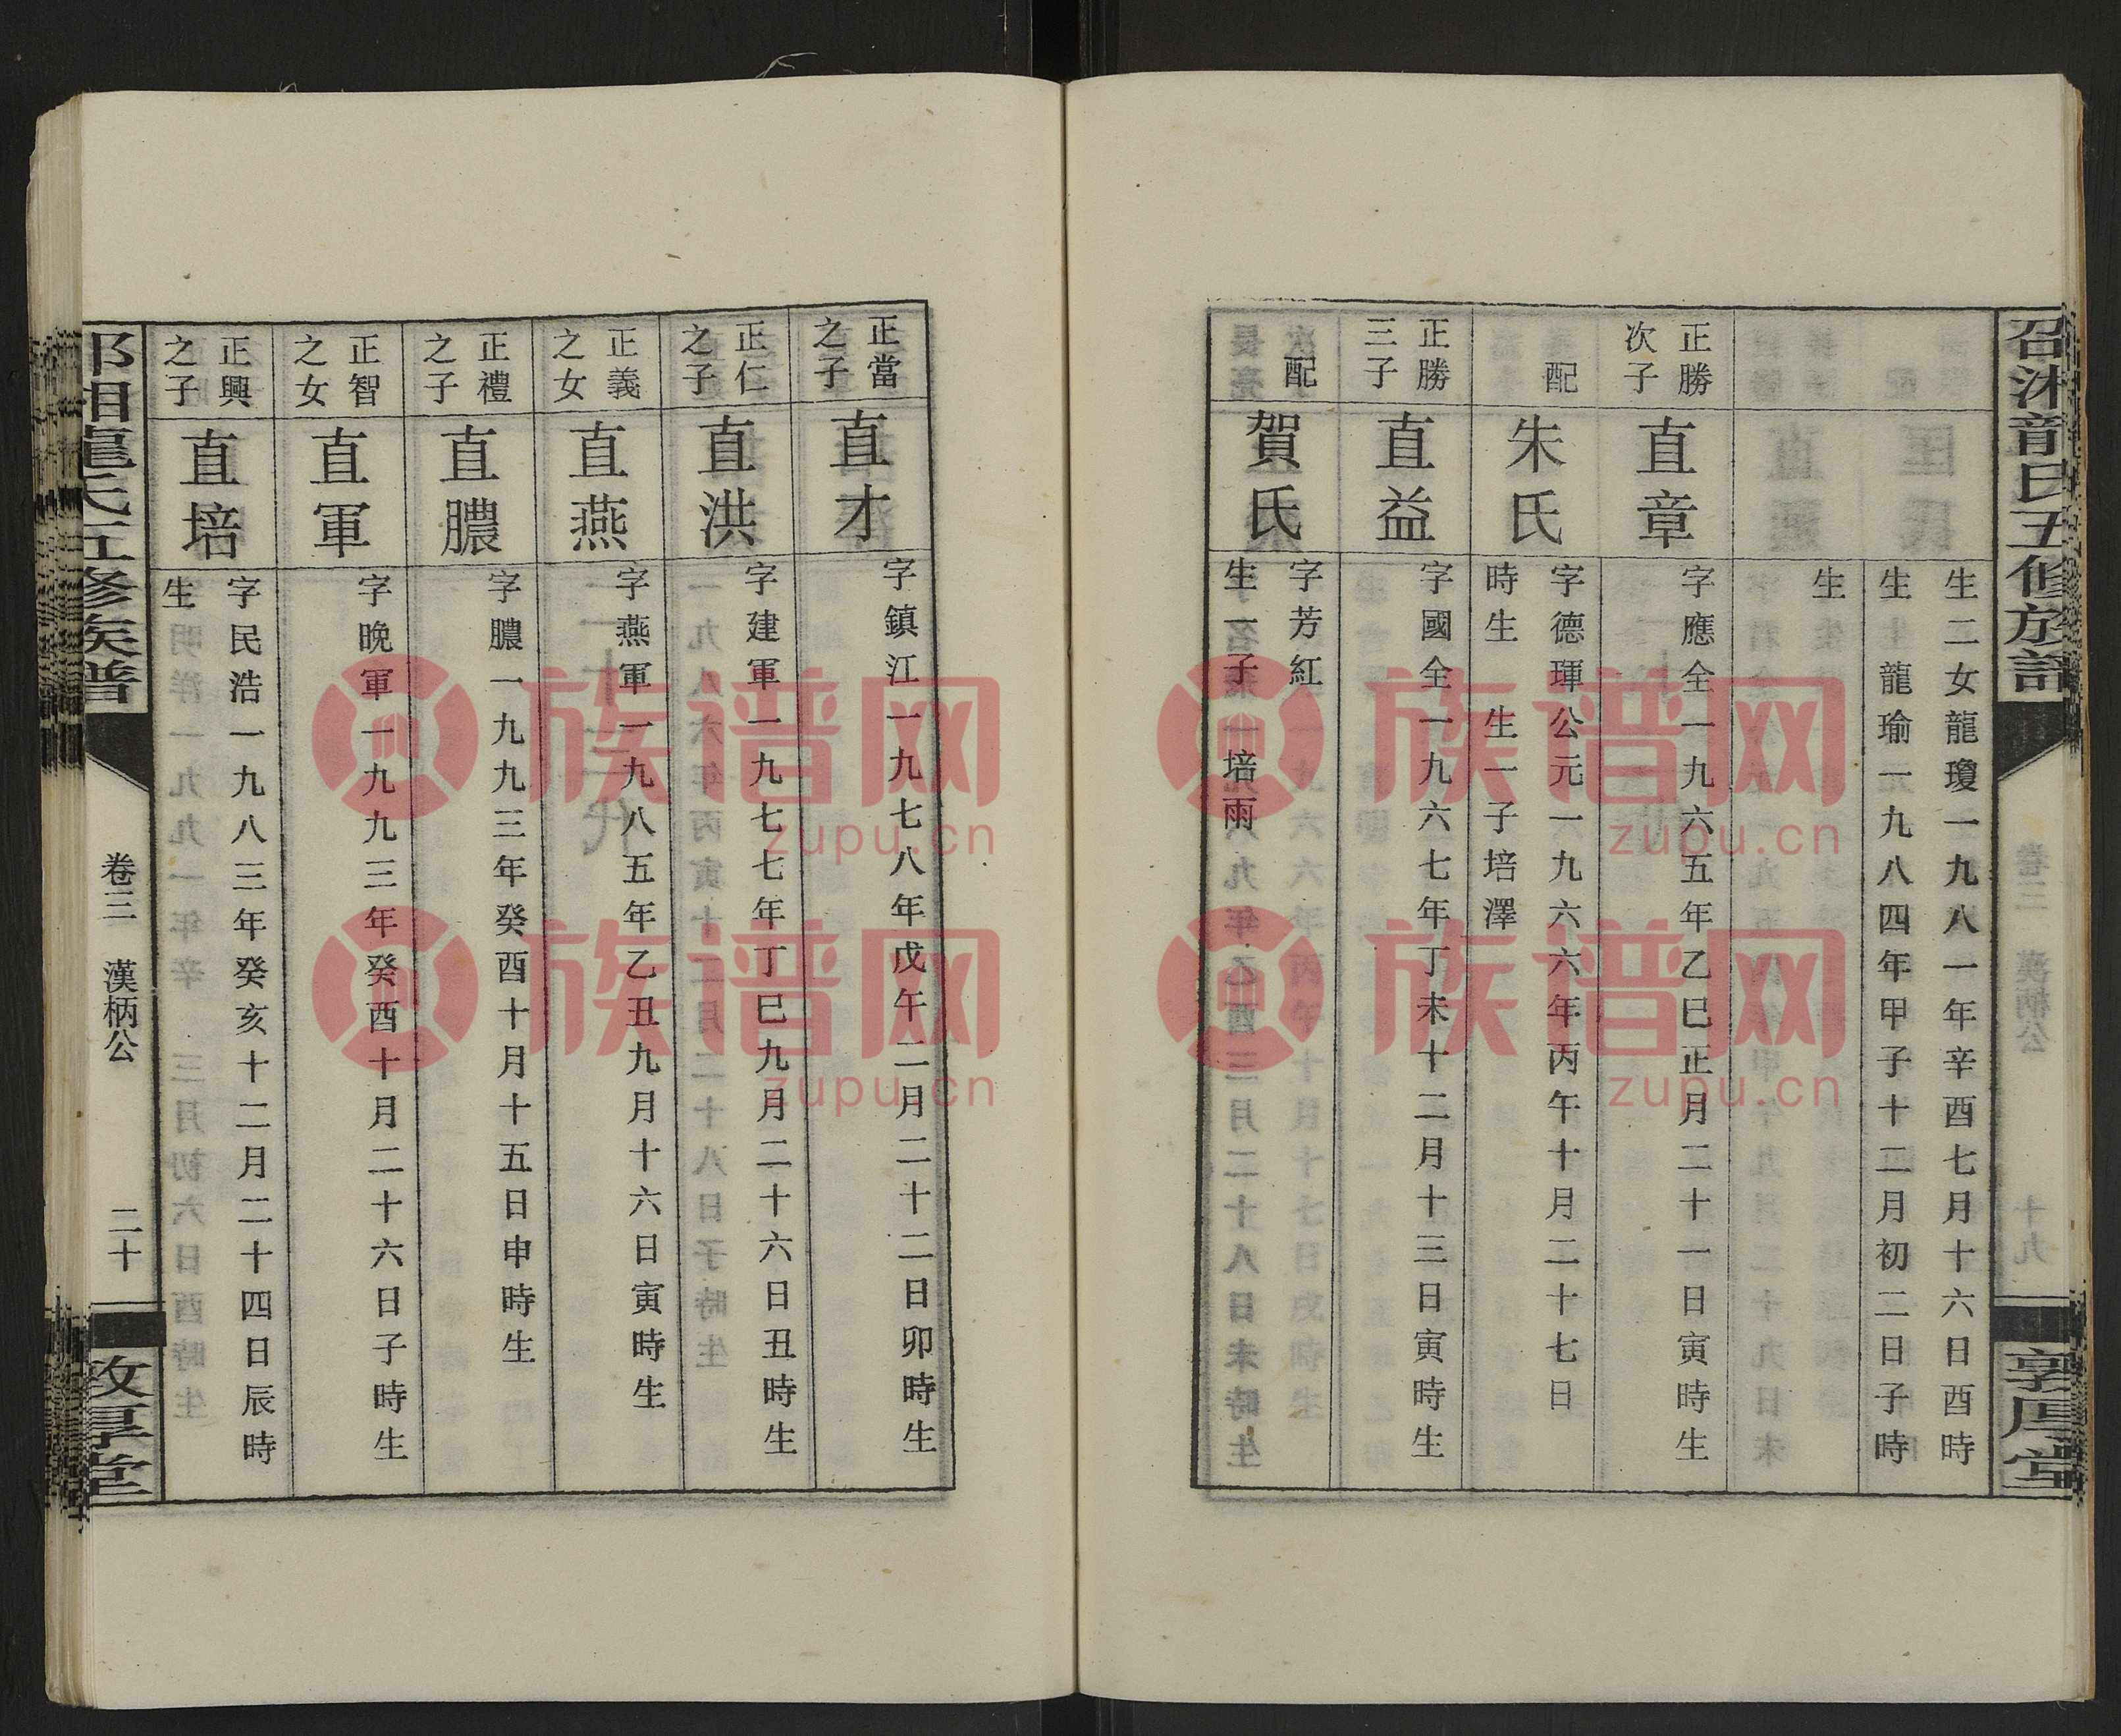 龍氏五修族譜
生二女龍瓊一九八一年辛酉七月十六日酉時
生 龍瑜一九八四年甲子十二月初二日子時
生
正勝
次子
直章
字應全一九六五年乙巳正月二十一日寅時生
配
朱氏
字德琿公元一九六六年丙午十月二十七日
時生 生一子培澤
正勝
三子
直益
字國全一九六七年丁未十二月十三日寅時生
配
賀氏
字芳紅
生一子 培雨
正當
之子
直才
字鎮江一九七八年戊午二月二十二日卯時生
正仁
之子
直洪
字建軍一九七七年丁巳九月二十六日丑時生
正義
之女
直燕
字燕軍一九八五年乙丑九月十六日寅時生
正禮
之子
直膿
字膿一九九三年癸酉十月十五日申時生
正智
之女
直軍
字晚軍一九九三年癸酉十月二十六日子時生
正興
之子
直培
字民浩一九八三年癸亥十二月二十四日辰時
生
龍氏五修族譜
卷三 漢柄公
二十
厚堂
族谱网
zupu.cn
族谱网
zupu.cn
族谱网
zupu.cn
族谱网
zupu.cn